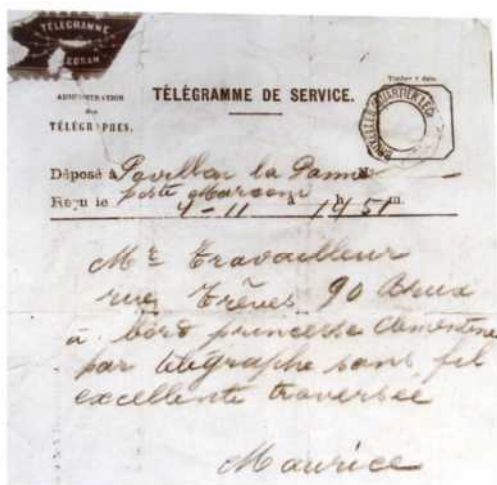 TÉLÉGRAMME
ADMINISTRATION
des
TÉLÉGRAPHES.
TÉLÉGRAMME DE SERVICE.
Timbre à date.
Déposé à Pavillon la Panne N.
poste Marconi
Reçu le 4-11 à 1 h 51 m.
Mr Travailleur
rue Trêves 90 Brux
à bord princesse Clémentine
par télégraphe sans fil
excellente traversée
Maurice